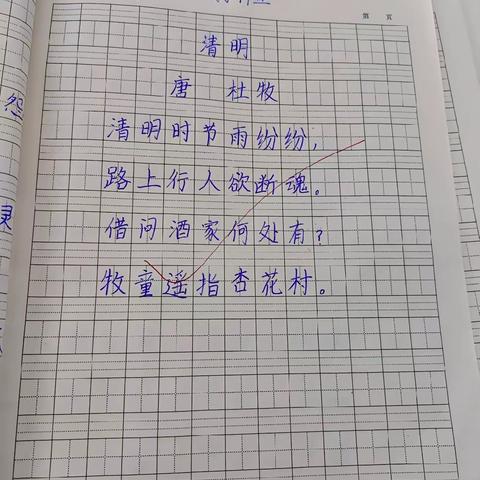 第 页
清明
唐 杜牧
清明时节雨纷纷，
路上行人欲断魂。
借问酒家何处有？
牧童遥指杏花村。